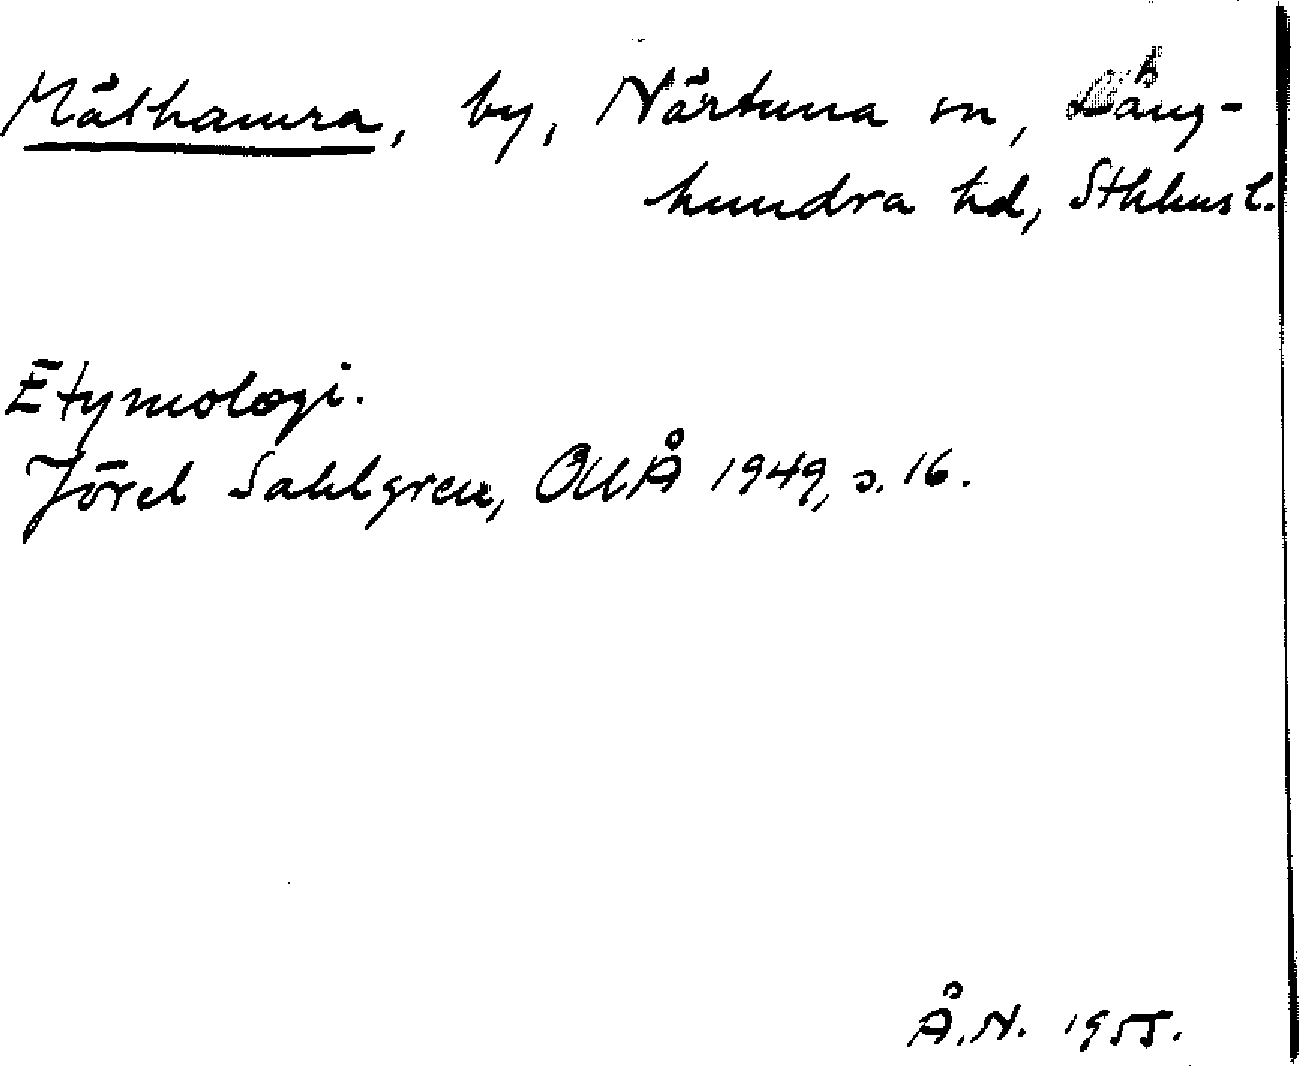 Mälhamra, by, Närtuna sn, Lång-
hundra hd, Sthlms l.
Etymologi.
Jöran Sahlgren, OUÅ 1949, s. 16.
Å.N. 1955.